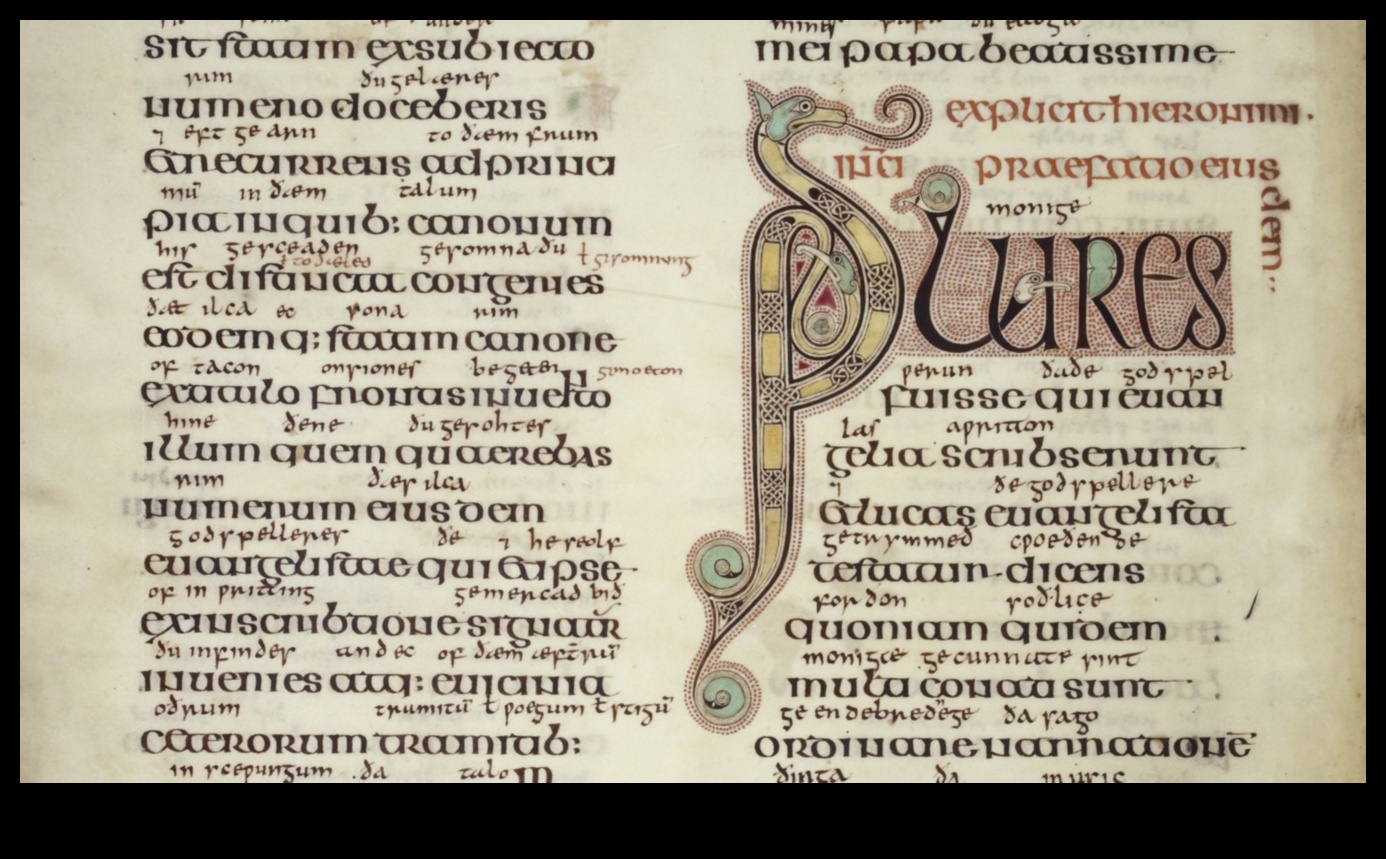 sit statim exsubiecto
rim ðu gelæner
numero doceberis
⁊ eft geann to ðæm frum
et recurrens adprinci
mū in ðæm talum
pia inquib; canonum
his gesceaden geromna ðu ł giromnung
est distincta congeries
ðæt ilca ec sona rim
eodemq; statim canone
of tacon onsiones begeten
extitulo frontis inuento
hine ðene ðu gesohtes
illum quem quaerebas
rim ðes ilca
numerum eiusdem
godspelleres ðe ⁊ he seolf
euangelistae qui et ipse
of in pritting gemercad bið
exinscribtione signatur
ðu infindes and ec of ðæm æftrū
inuenies atq; euicinia
oðrum trumitū ł poegum ł stigū
ceterorum tramitib;
in sceapungum ða talo
mei papa beatissime
explicit hieronimi.
incipit praefatio eiusdem
monige
PLURES
perun ðaðe godspel
fuisse qui euan
las apritton
gelia scribserunt
⁊ ðe godspellere
et lucas euangelista
getrymmeð cpoeðende
testatur dicens
forðon soðlice
quoniam quidem
monigæ gecunnate sint
multi conati sunt
ge endebrednege ða sago
ordinare narrationē